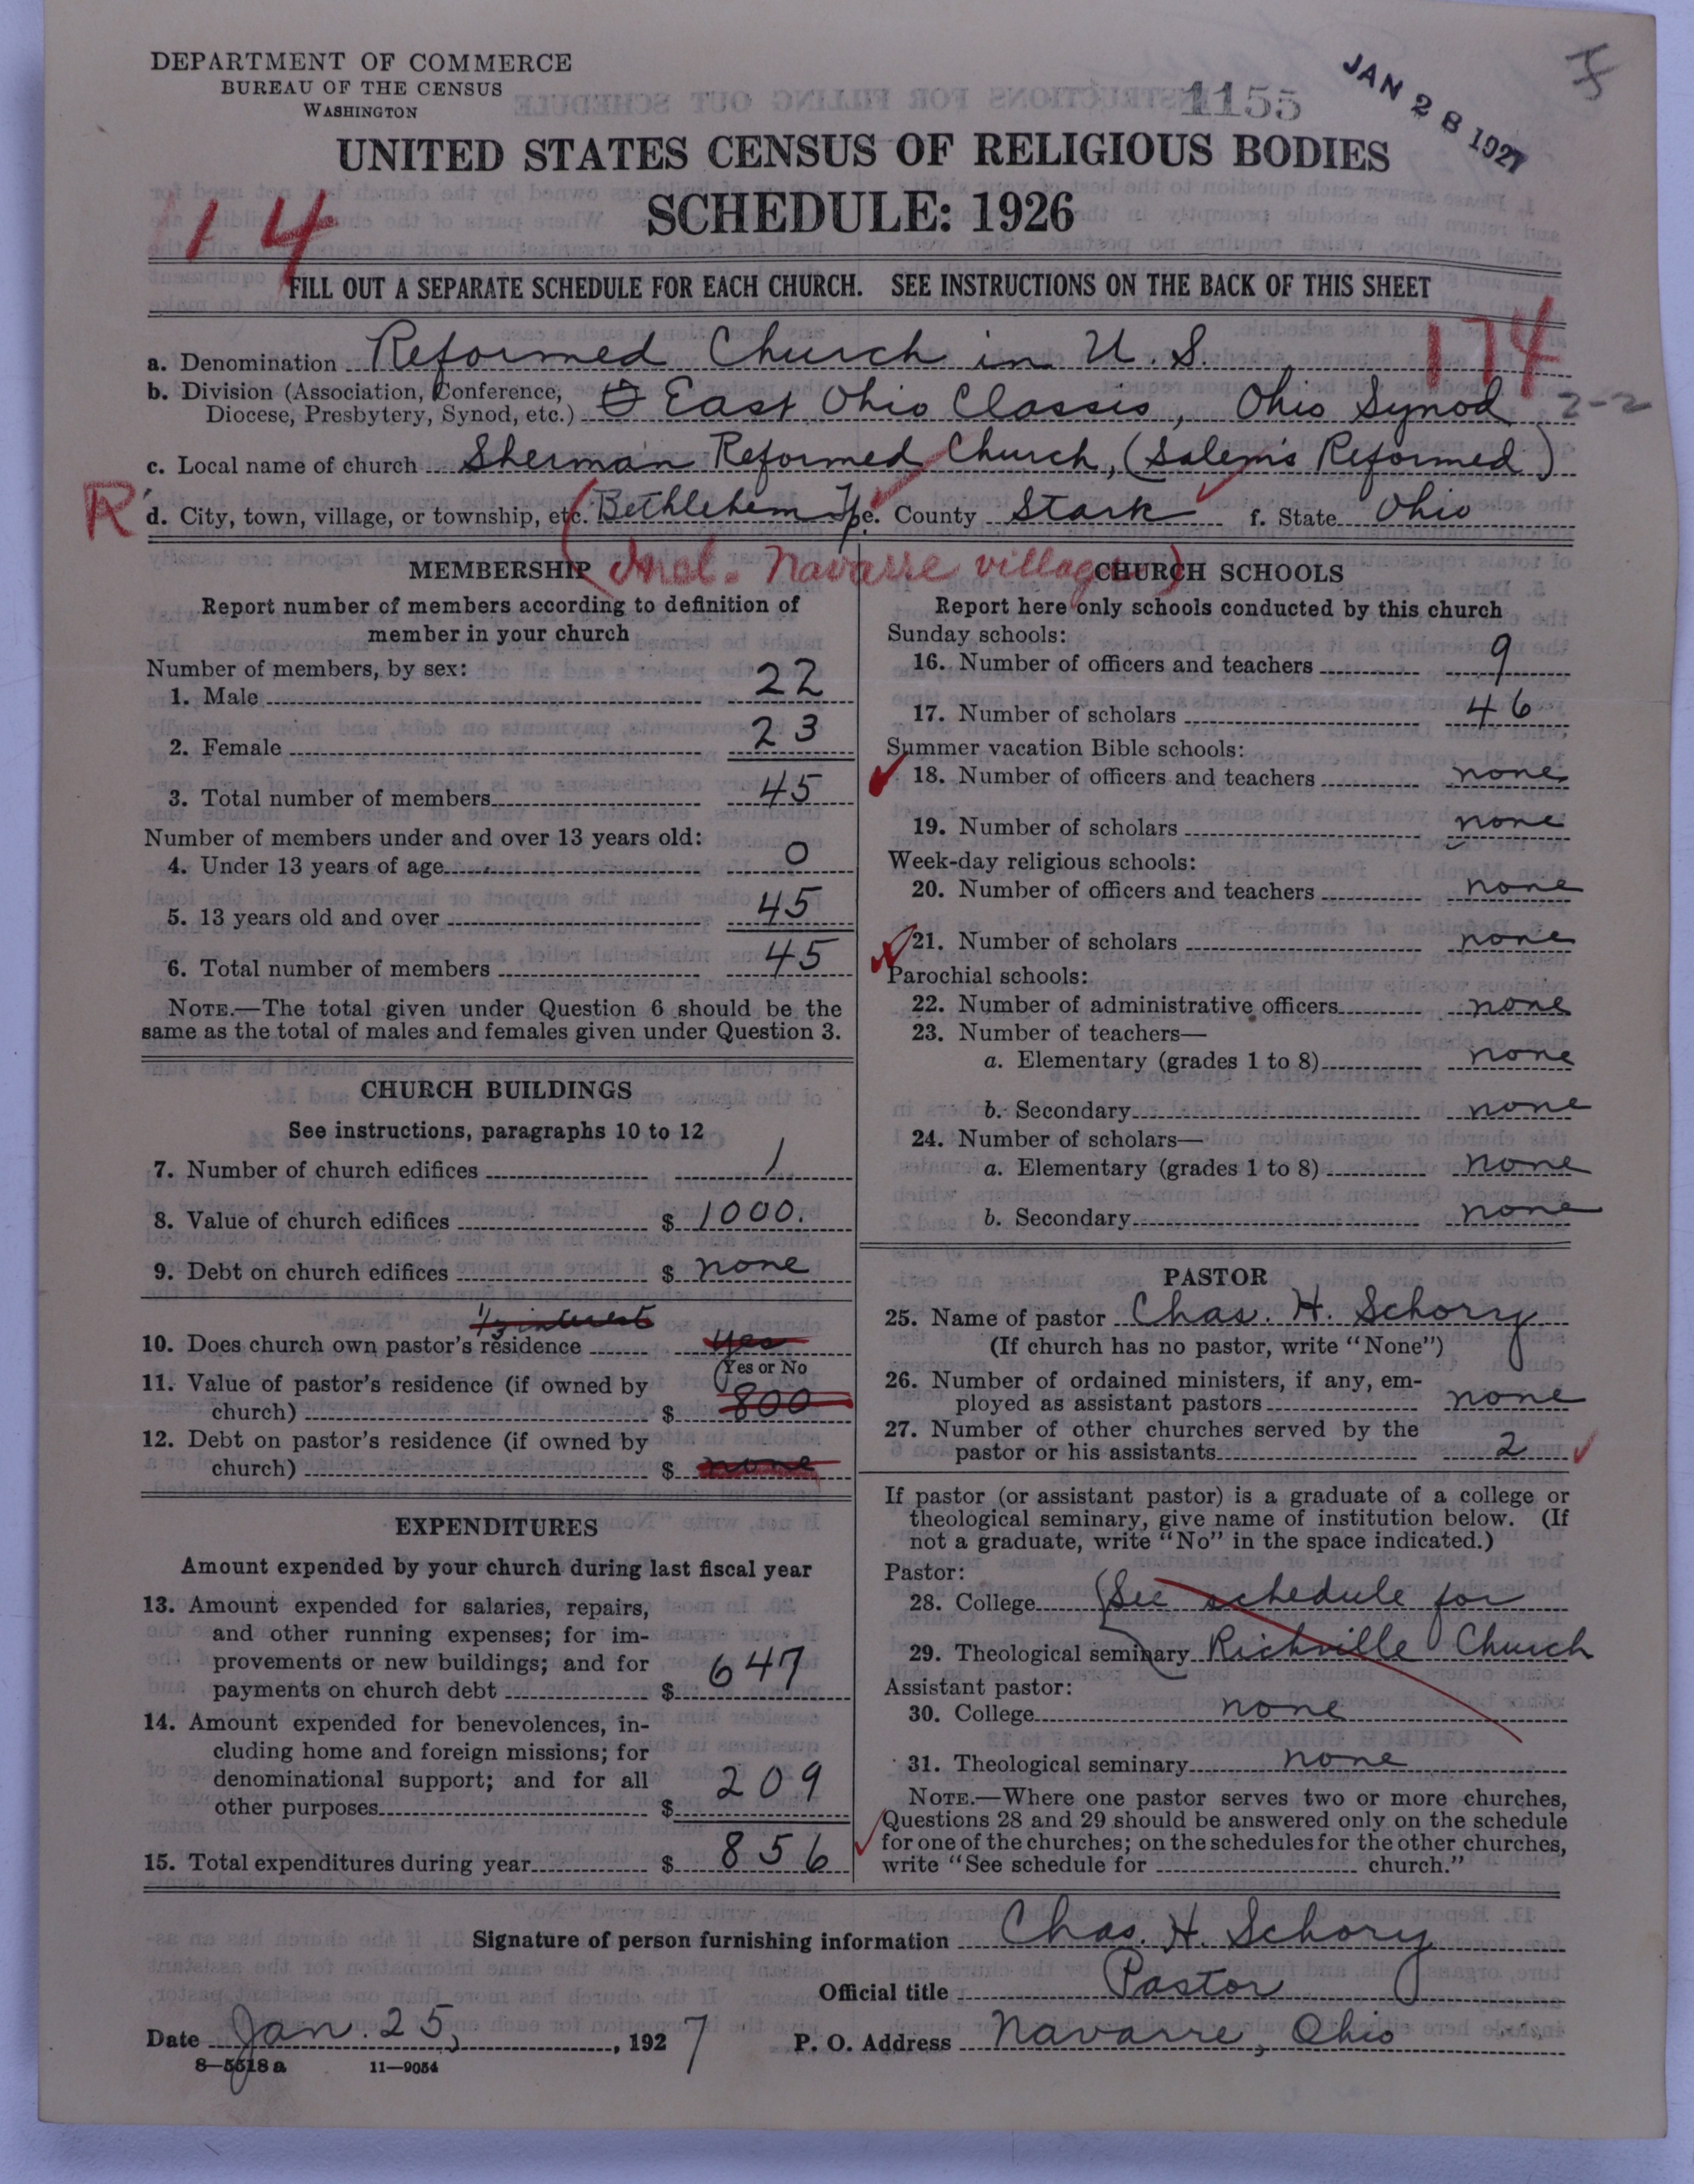 DEPARTMENT OF COMMERCE
BUREAU OF THE CENSUS
WASHINGTON
1155
JAN 28 1927
UNITED STATES CENSUS OF RELIGIOUS BODIES
SCHEDULE: 1926
14
FILL OUT A SEPARATE SCHEDULE FOR EACH CHURCH. SEE INSTRUCTIONS ON THE BACK OF THIS SHEET
174
a. Denomination Reformed Church in U. S.
b. Division (Association, Conference,
Diocese, Presbytery, Synod, etc.) East Ohio Classis, Ohio Synod 2-2
c. Local name of church Sherman Reformed Church, (Salem's Reformed)
R d. City, town, village, or township, etc. Bethlehem Tp e. County Stark f. State Ohio
(Incl. Navarre village)
MEMBERSHIP
Report number of members according to definition of
member in your church
Number of members, by sex:
1. Male 22
2. Female 23
3. Total number of members 45
Number of members under and over 13 years old:
4. Under 13 years of age 0
5. 13 years old and over 45
6. Total number of members 45
NOTE.—The total given under Question 6 should be the
same as the total of males and females given under Question 3.
CHURCH BUILDINGS
See instructions, paragraphs 10 to 12
7. Number of church edifices 1
8. Value of church edifices $ 1000.
9. Debt on church edifices $ none
1/3 interest
10. Does church own pastor's residence yes
(Yes or No
11. Value of pastor's residence (if owned by
church) $ 800
12. Debt on pastor's residence (if owned by
church) $ none
EXPENDITURES
Amount expended by your church during last fiscal year
13. Amount expended for salaries, repairs,
and other running expenses; for im-
provements or new buildings; and for
payments on church debt $ 647
14. Amount expended for benevolences, in-
cluding home and foreign missions; for
denominational support; and for all
other purposes $ 209
15. Total expenditures during year $ 856
CHURCH SCHOOLS
Report here only schools conducted by this church
Sunday schools:
16. Number of officers and teachers 9
17. Number of scholars 46
Summer vacation Bible schools:
18. Number of officers and teachers none
19. Number of scholars none
Week-day religious schools:
20. Number of officers and teachers none
21. Number of scholars none
Parochial schools:
22. Number of administrative officers none
23. Number of teachers—
a. Elementary (grades 1 to 8) none
b. Secondary none
24. Number of scholars—
a. Elementary (grades 1 to 8) none
b. Secondary none
PASTOR
25. Name of pastor Chas. H. Schory
(If church has no pastor, write "None")
26. Number of ordained ministers, if any, em-
ployed as assistant pastors none
27. Number of other churches served by the
pastor or his assistants 2
If pastor (or assistant pastor) is a graduate of a college or
theological seminary, give name of institution below. (If
not a graduate, write "No" in the space indicated.)
Pastor:
28. College (See schedule for
29. Theological seminary Richville Church
Assistant pastor:
30. College none
31. Theological seminary none
NOTE.—Where one pastor serves two or more churches,
Questions 28 and 29 should be answered only on the schedule
for one of the churches; on the schedules for the other churches,
write "See schedule for church."
Signature of person furnishing information Chas. H. Schory
Official title Pastor
Date Jan. 25, 1927 P. O. Address Navarre, Ohio
8—5518 a 11—9054